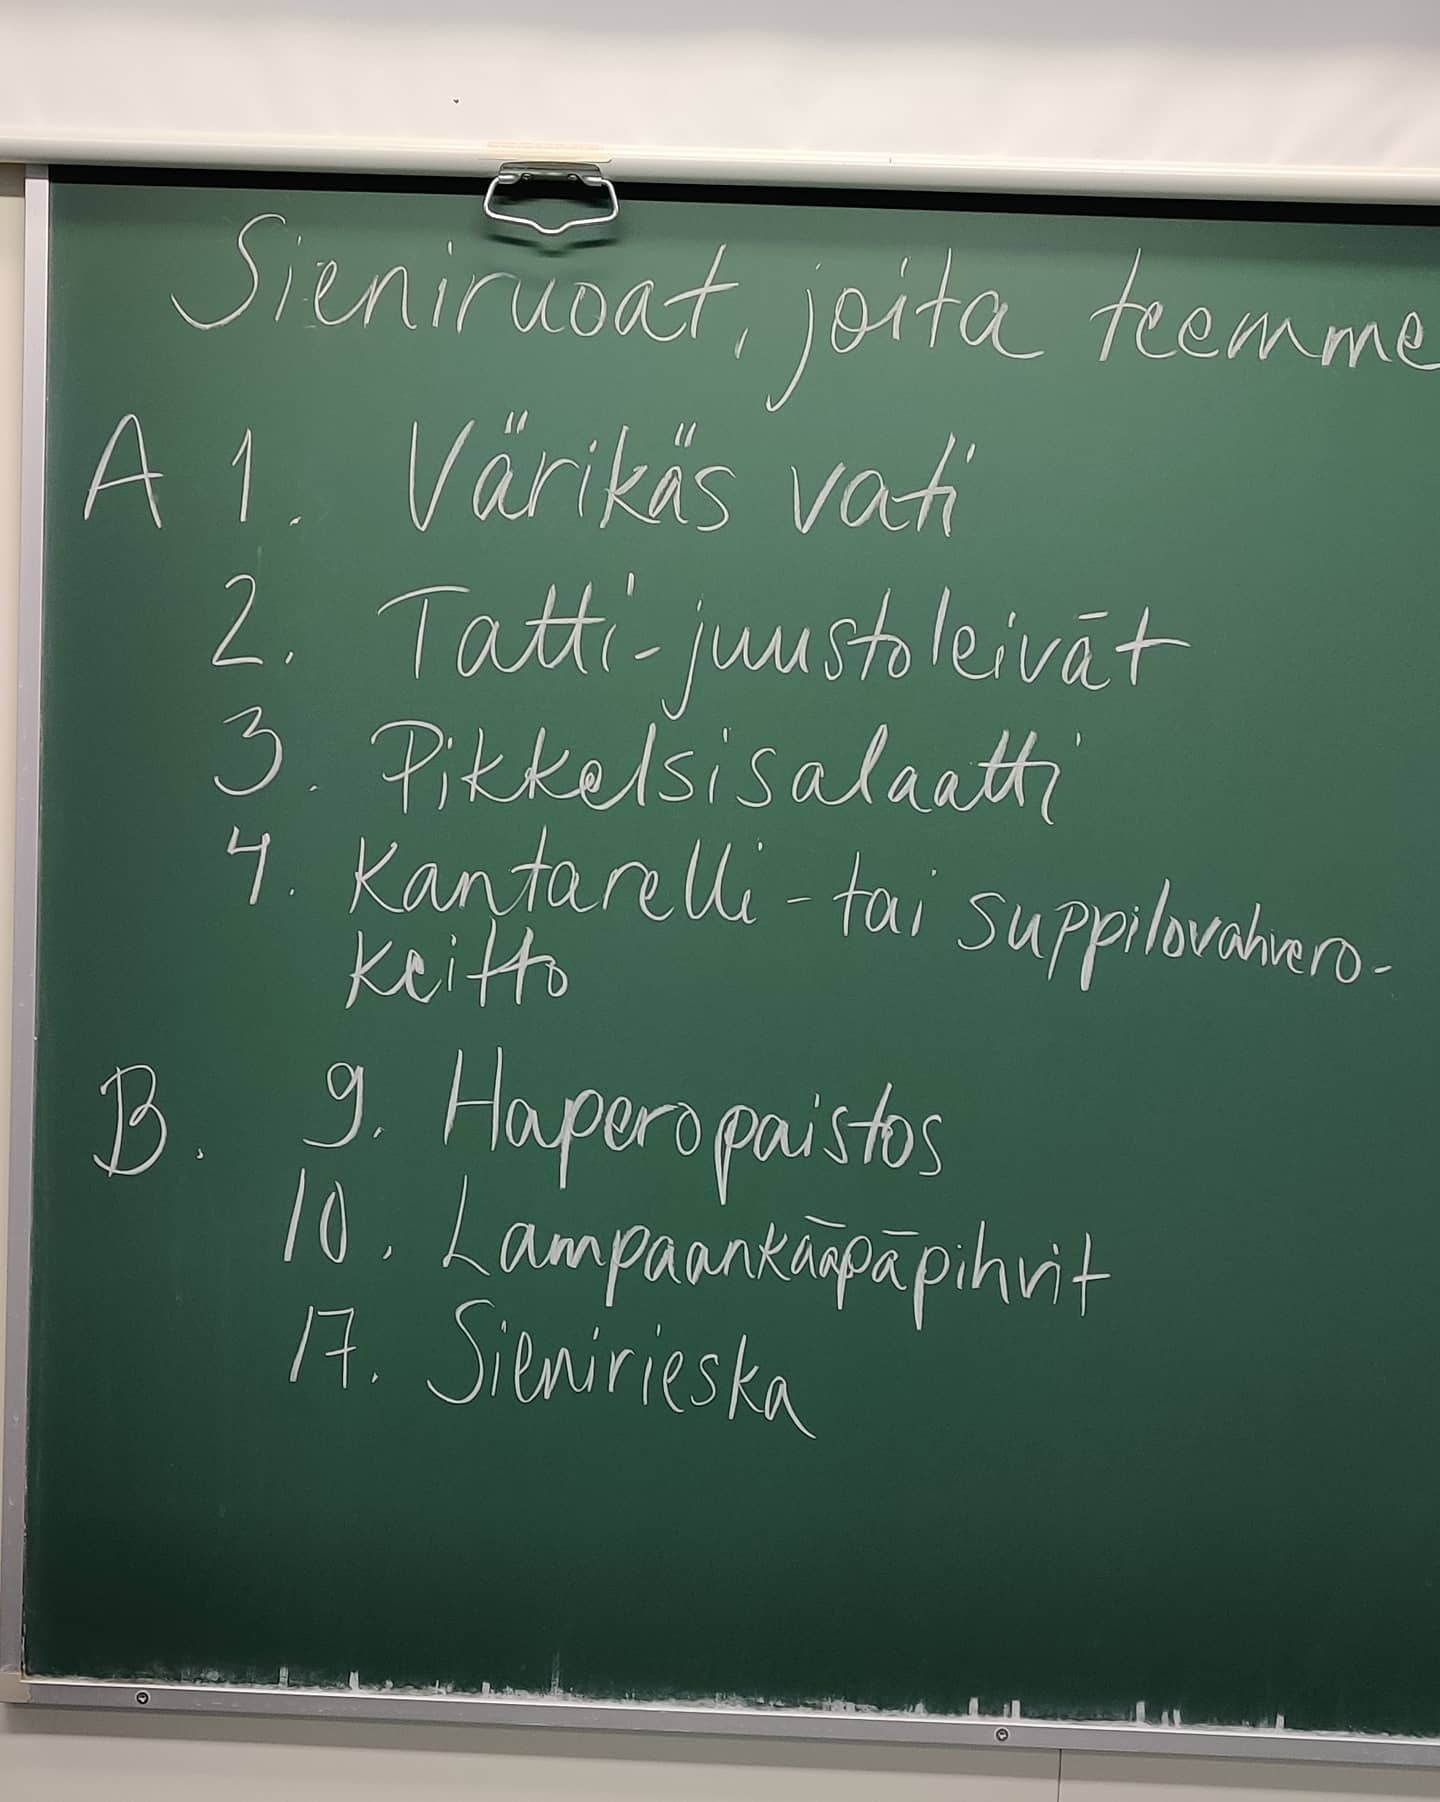 Sieniruoat, joita teemme
A 1. Värikäs vati
2. Tatti-juustoleivät
3. Pikkelsisalaatti
4. Kantarelli- tai suppilovahvero-
keitto
B. 9. Haperopaistos
10. Lampaankääpäpihvit
17. Sienirieska